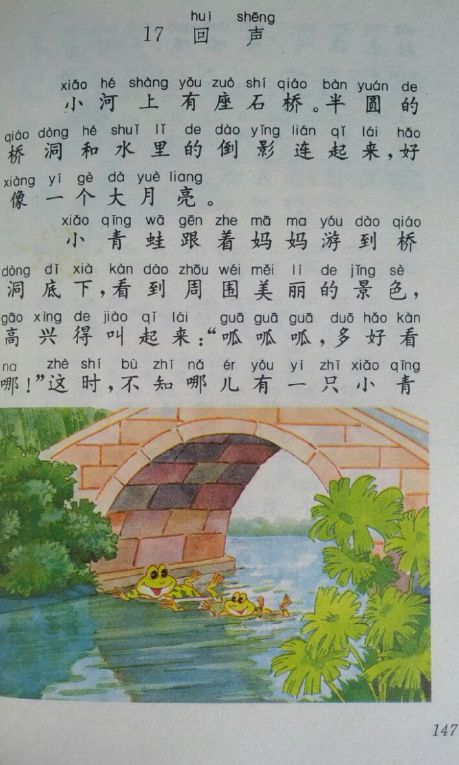 huí shēng
17 回 声
xiǎo hé shàng yǒu zuò shí qiáo bàn yuán de
小 河 上 有 座 石 桥 。 半 圆 的
qiáo dòng hé shuǐ lǐ de dào yǐng lián qǐ lái hǎo
桥 洞 和 水 里 的 倒 影 连 起 来 , 好
xiàng yí gè dà yuè liang
像 一 个 大 月 亮 。
xiǎo qīng wā gēn zhe mā ma yóu dào qiáo
小 青 蛙 跟 着 妈 妈 游 到 桥
dòng dǐ xià kàn dào zhōu wéi měi lì de jǐng sè
洞 底 下 , 看 到 周 围 美 丽 的 景 色 ,
gāo xìng de jiào qǐ lái guā guā guā duō hǎo kàn
高 兴 得 叫 起 来 : “ 呱 呱 呱 , 多 好 看
na zhè shí bù zhī nǎ ér yǒu yì zhī xiǎo qīng
哪 ! ” 这 时 , 不 知 哪 儿 有 一 只 小 青
147